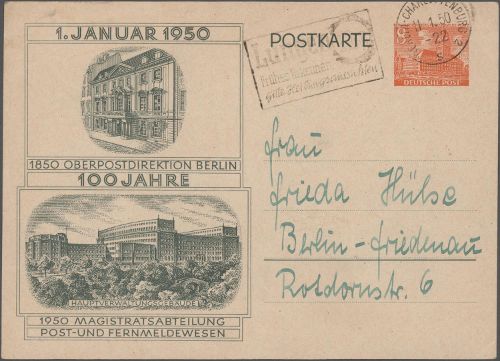 1. JANUAR 1950
1850 OBERPOSTDIREKTION BERLIN
100 JAHRE
HAUPTVERWALTUNGSGEBÄUDE
1950 MAGISTRATSABTEILUNG
POST-UND FERNMELDEWESEN
POSTKARTE
CHARLOTTENBURG 2
1.50
22
DEUTSCHE POST
Frau
Frieda Hülse
Berlin-Friedenau
Rotdornstr. 6